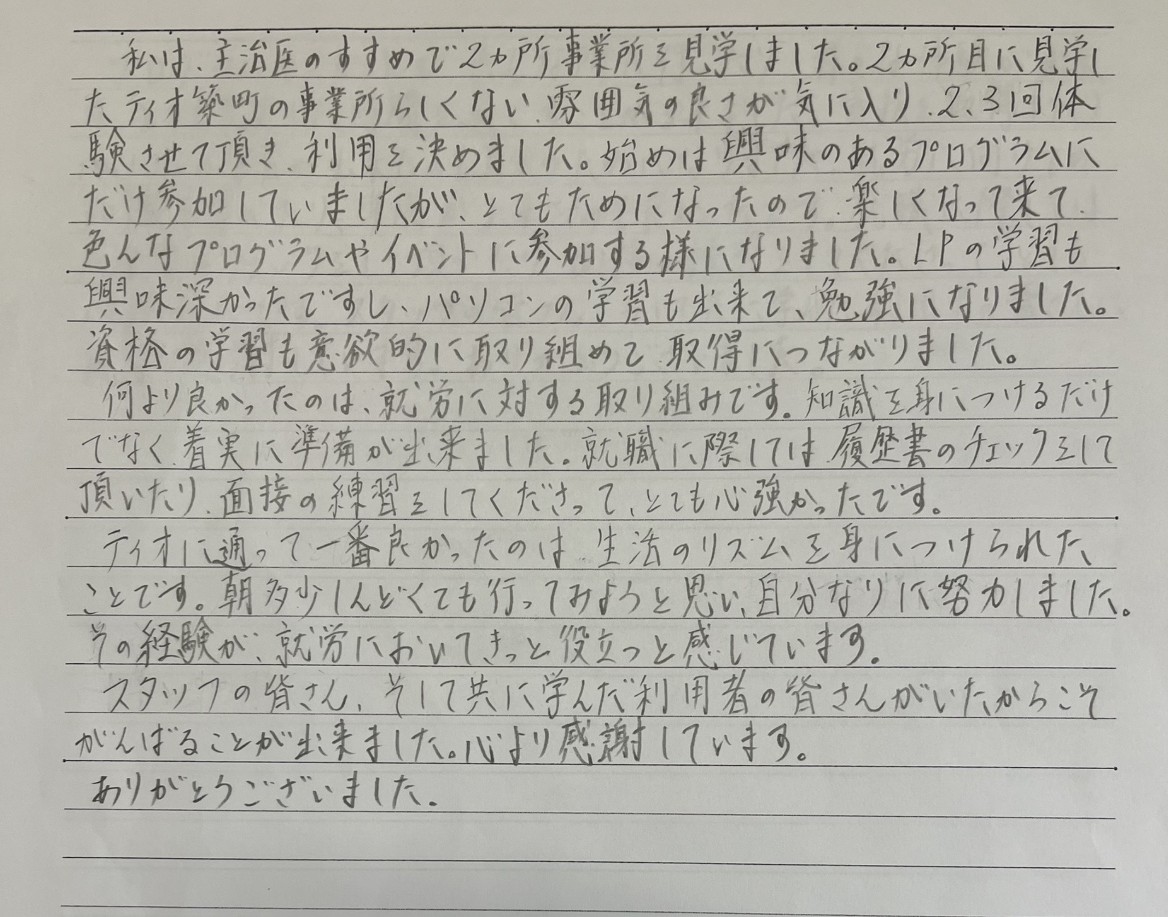 私は、主治医のすすめで2カ所事業所を見学しました。2カ所目に見学し
たティオ築町の事業所らしくない、雰囲気の良さが気に入り、2、3回体
験させて頂き、利用を決めました。始めは興味のあるプログラムに
だけ参加していましたが、とてもためになったので、楽しくなって来て、
色んなプログラムやイベントに参加する様になりました。LPの学習も
興味深かったですし、パソコンの学習も出来て、勉強になりました。
資格の学習も意欲的に取り組めて、取得につながりました。
何より良かったのは、就労に対する取り組みです。知識を身につけるだけ
でなく、着実に準備が出来ました。就職に際しては、履歴書のチェックをして
頂いたり、面接の練習をしてくださって、とても心強かったです。
ティオに通って一番良かったのは、生活のリズムを身につけられた
ことです。朝多少しんどくても行ってみようと思い、自分なりに努力しました。
その経験が、就労においてきっと役立つと感じています。
スタッフの皆さん、そして共に学んだ利用者の皆さんがいたからこそ
がんばることが出来ました。心より感謝しています。
ありがとうございました。